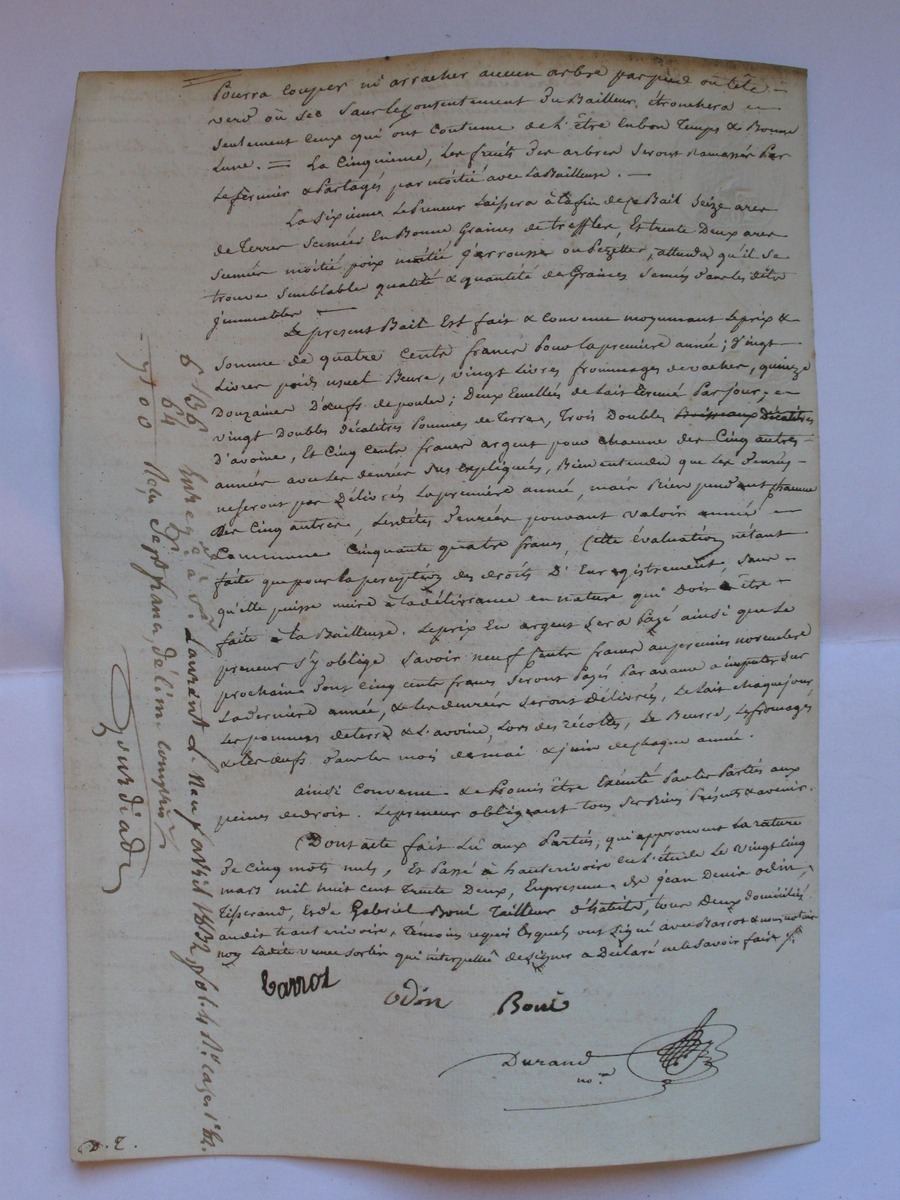 Pourra Couper ni arracher aucun arbre par pied ou tête
verd où sec Sans le Consentement du Bailleur, étronchera
Seulement Ceux qui ont Coutume de l'Être En bon Temps & Bonne
Lune. = La Cinquieme, Les fruits des arbres Seront Ramassés Par
Le fermier & Partagés par moitié avec La Bailleuse. —
La Sixieme Le Preneur Laissera à la fin de ce Bail Seize ares
de Terres Semées En Bonne Graines de treffles, Et trente Deux ares
Semés moitié poix moitié jarrousse ou Pezettes, attendu qu'il Se
trouve Semblable qualité & quantité de Graines Semés dans les dits
jmmeubles —
Le present Bail Est fait & Convenu moyennant Le prix &
Somme de quatre Cents francs Pour la premiere année ; Vingt
Livres poids usuel Beure, Vingt Livres frommages de vaches, quinze
Douzaines D'œufs de poules ; Deux de Lait Par jour,
vingt Doubles Décalitres Pommes de Terres, Trois Doubles Décalitres
D'avoine, Et Cinq Cents francs argent pour Chacune des Cinq autres
années avec les denrées Sus Expliqués, Bien entendu que Les Denrées
ne Seront pas Délivrés La premiere année, mais Bien pendant chacune
des Cinq autres, Lesdites Denrées pouvant valoir année
Commune Cinquante quatre francs, Cette évaluation n'étant
faite que pour la perception des droits D'Enregistrement, Sans
qu'elle puisse nuire à la délivrance en nature qui Doit être
faite à La Bailleuse. Le prix En argent Sera Payé ainsi que Le
preneur S'y oblige Savoir neuf Cents francs au premier novembre
prochain Dont Cinq Cents francs Seront Payés Par avance à imputer Sur
La derniere année, & les denrées Seront Délivrés, Le Lait Chaque jour,
Les pommes de terre & L'avoine, Lors des récoltes, Le Beurre, Les fromages
& les œufs dans les mois de mai & juin de chaque année.
ainsi Convenu & Promis être Exécuté Par les Parties aux
peines de droit. Le preneur obligeant tous Ses Biens Présents & avenir.
Dont acte fait Lû aux Parties, qui approuvent La rature
de Cinq mots nuls, Et Passé à hauterivoire En L'étude Le Vingt Cinq
mars mil huit Cent Trente Deux, En presence de jean Denis odin,
Tisserand, Et de Gabriel Boué Tailleur d'habits, tous Deux domiciliés
audit haut erivoire, Témoins requis Lesquels ont Signé avec Barcot & nous notaire
non Ladite qui interpellée de Signer a Déclaré ne le Savoir faire
Barrot
odin Boué
Durand
no.re
D. E.
6 136
64
7 00
Enregé. à St. Laurent L. Neuf avril 1832, fol. 4 Ro. Cases 1e &2.
Reçu Sept francs, décime compris
Gourdiad